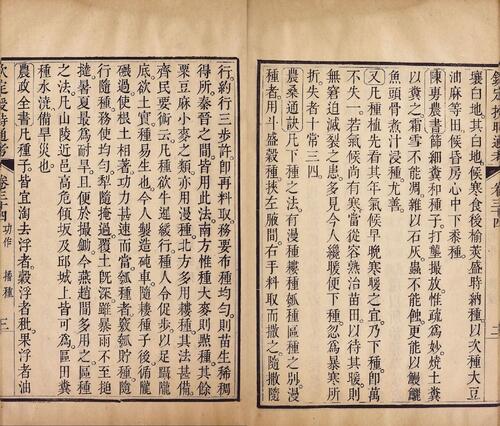 穰白地其白地候寒食後榆莢盛時納種以次種大豆
油麻等田候昏房心中下黍種
陳旉農書篩細糞和種子打壟撮放惟疏為妙燒土糞
以糞之霜雪不能凋雜以石灰蟲不能蝕更能以鰻鱺
魚頭骨煮汁浸種尤善
又凡種植先看其年氣候早晚寒暖之宜乃下種即萬
不失一若氣候尚有寒當從容熟治苗田以待其暖則
無窘迫滅裂之患多見今人纔暖便下種忽為暴寒所
折失者十常三四
農桑通訣凡下種之法有漫種耬種瓠種區種之別漫
種者用斗盛穀種挾左腋間右手料取而撒之隨撒隨
行約行三步許即再料取務要布種均勻則苗生稀稠
得所秦晉之間皆用此法南方惟種大麥則點種其餘
粟豆麻小麥之類亦用漫種北方多用耬種其法甚備
齊民要術云凡種欲牛遲緩行種人令促步以足躡隴
底欲土實種易生也今人製造砘車隨耬種子後循隴
碾過使根土相著功力甚速而當瓠種者竅瓠貯種隨
行隨種務使均勻犁隨掩過覆土既深雖暴雨不至搥
撻暑夏最為耐旱且便於撮鋤今燕趙間多用之區種
之法凡山陵近邑高危傾坂及邱城上皆可為區田糞
種水澆備旱災也
農政全書凡種子皆宜淘去浮者穀浮者秕果浮者油
欽定授時通考 卷三十四 功作 播種 三